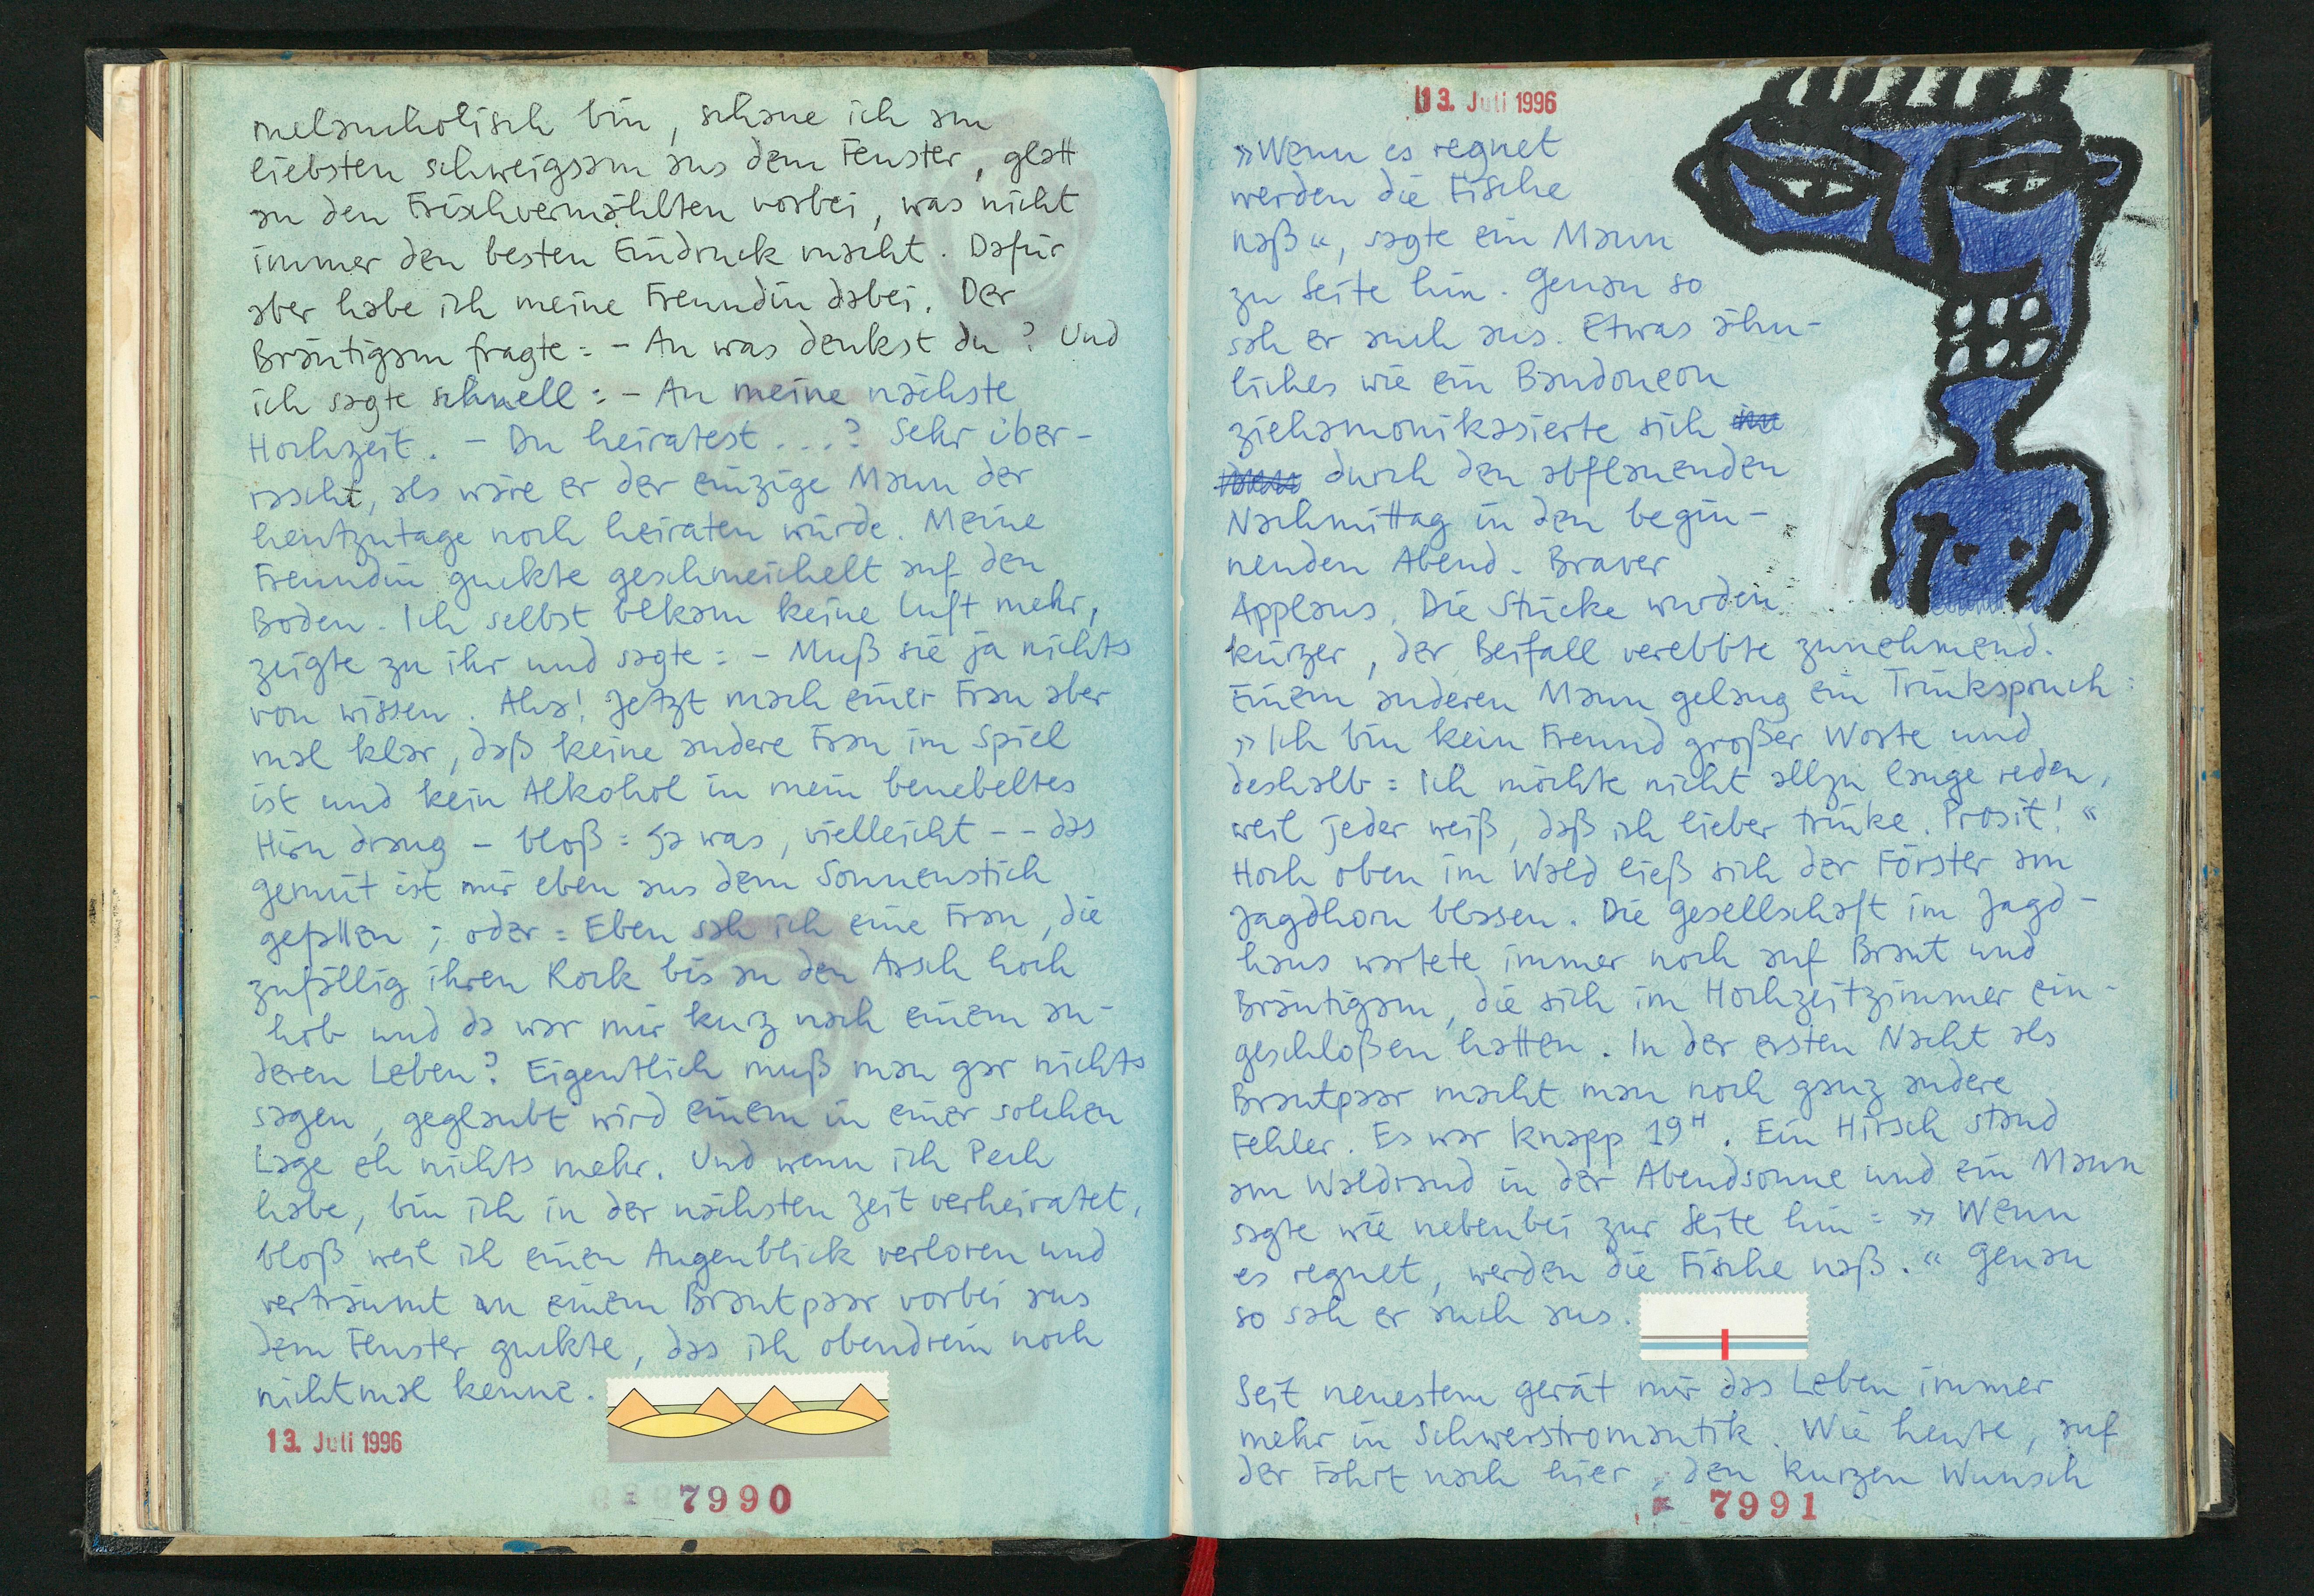 melancholisch bin, schaue ich am
liebsten schweigsam aus dem Fenster, glatt
an den Frischvermählten vorbei, was nicht
immer den besten Eindruck macht. Dafür
aber habe ich meine Freundin dabei. Der
Bräutigam fragte: - An was denkst du? Und
ich sagte schnell: - An meine nächste
Hochzeit. - Du heiratest...? Sehr über-
rascht, als wäre er der einzige Mann der
heutzutage noch heiraten würde. Meine
Freundin guckte geschmeichelt auf den
Boden. Ich selbst bekam keine Luft mehr,
zeigte zu ihr und sagte: - Muß sie ja nichts
von wissen. Aha! Jetzt mach einer Frau aber
mal klar, daß keine andere Frau im Spiel
ist und kein Alkohol in mein benebeltes
Hirn drang - bloß: Ja was, vielleicht -- das
gemüt ist mir eben aus dem Sonnenstich
gefallen; oder: Eben sah ich eine Frau, die
zufällig ihren Rock bis an den Arsch hoch
hob und da war mir kurz nach einem an-
deren Leben? Eigentlich muß man gar nichts
sagen, geglaubt wird einem in einer solchen
Lage eh nichts mehr. Und wenn ich Pech
habe, bin ich in der nächsten Zeit verheiratet,
bloß weil ich einen Augenblick verloren und
verträumt an einem Brautpaar vorbei aus
dem Fenster guckte, das ich obendrein noch
nichtmal kenne.
13. Juli 1996
7990
13. Juli 1996
»Wenn es regnet
werden die Fische
naß«, sagte ein Mann
zu Seite hin. Genau so
sah er auch aus. Etwas ähn-
liches wie ein Bandoneon
ziehamonikasierte sich
durch den abflauenden
Nachmittag in den begin-
nenden Abend. Braver
Applaus. Die Stücke wurden
kürzer, der Beifall verebbte zunehmend.
Einem anderen Mann gelang ein Trinkspruch:
»Ich bin kein Freund großer Worte und
deshalb: Ich möchte nicht allzu lange reden,
weil jeder weiß, daß ich lieber trinke. Prosit!«
Hoch oben im Wald ließ sich der Förster am
Jagdhorn blasen. Die Gesellschaft im Jagd-
haus wartete immer noch auf Braut und
Bräutigam, die sich im Hochzeitzimmer ein-
geschloßen hatten. In der ersten Nacht als
Brautpaar macht man noch ganz andere
Fehler. Es war knapp 19ᴴ. Ein Hirsch stand
am Waldrand in der Abendsonne und ein Mann
sagte wie nebenbei zur Seite hin: »Wenn
es regnet, werden die Fische naß.« Genau
so sah er auch aus.
Seit neuestem gerät mir das Leben immer
mehr in Schwerstromantik. Wie heute, auf
der Fahrt nach hier, den kurzen Wunsch
7991